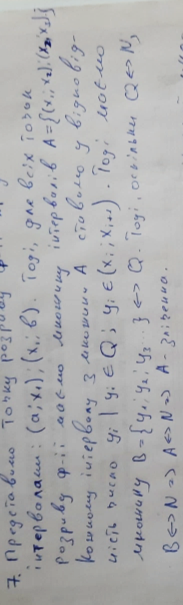 7. Представимо точку розриву ф-ії
інтервалами: (a; x₁); (x₁; b). Тоді, для всіх точок
розриву ф-ії маємо множину інтервалів A={(x₁; x₂); (x₂; x₃)}
Кожному інтервалу з множини A ставимо у відповід-
ність число yᵢ | yᵢ ∈ Q; yᵢ ∈ (xᵢ; xᵢ₊₁). Тоді маємо
множину B = {y₁; y₂; y₃ ...} ⇔ Q. Тоді, оскільки Q ⇔ N,
B ⇔ N ⇒ A ⇔ N ⇒ A - зліченна.